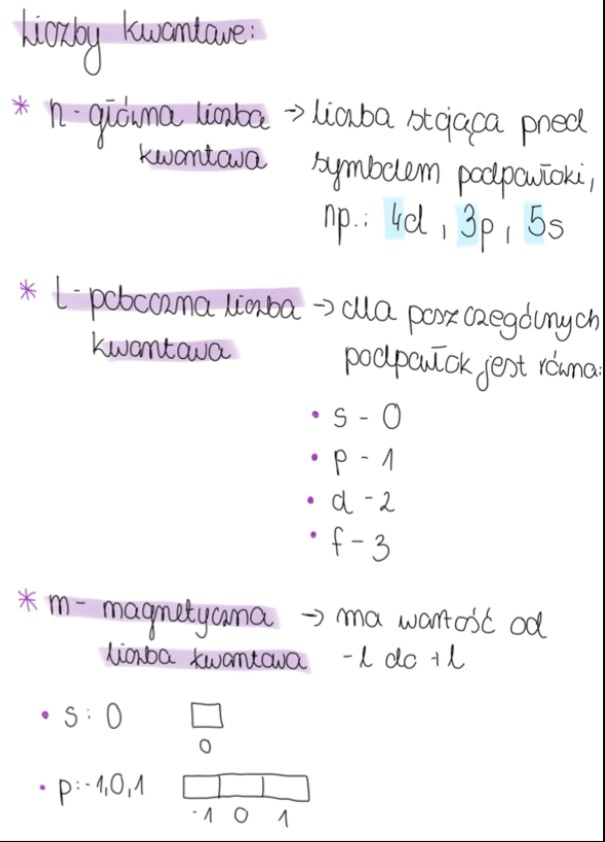 Liczby kwantowe:
* n - główna liczba → liczba stojąca przed
kwantowa symbolem podpowłoki,
np.: 4d, 3p, 5s
* l - poboczna liczba → dla poszczególnych
kwantowa podpowłok jest równa:
• s - 0
• p - 1
• d - 2
• f - 3
* m - magnetyczna → ma wartość od
liczba kwantowa -l do +l
• s: 0
0
• p: -1,0,1
-1 0 1